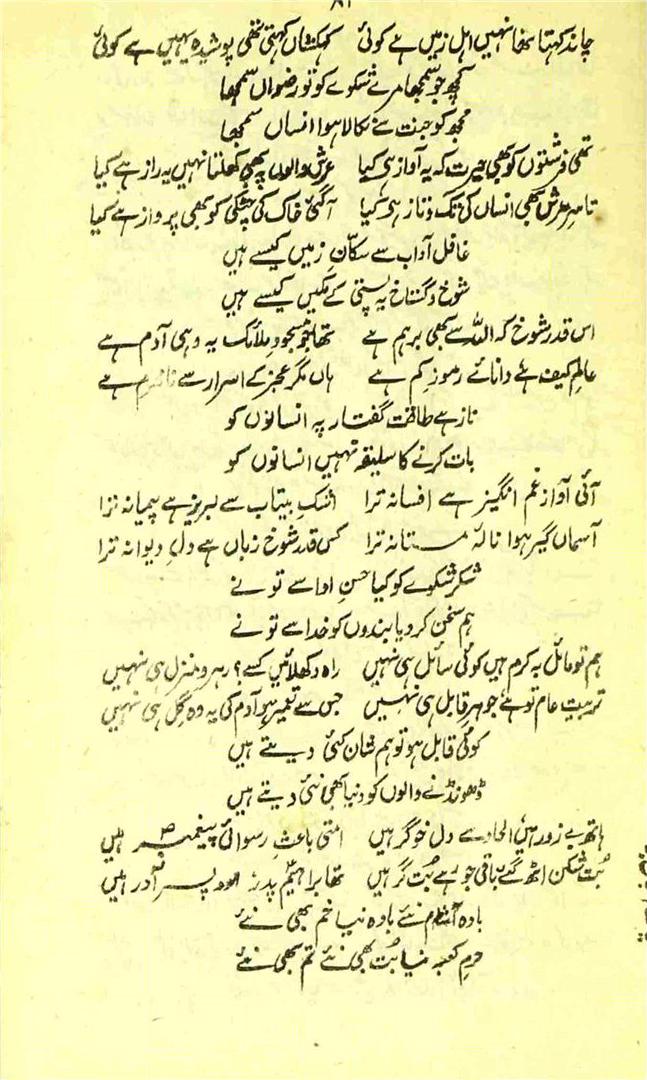 ۸۱
چاند کہتا تھا نہیں اہلِ زمیں ہے کوئی کہکشاں کہتی تھی پوشیدہ یہیں ہے کوئی
کچھ جو سمجھا مرے شکوے کو تو رضواں سمجھا
مجھ کو جنت سے نکالا ہوا انساں سمجھا
تھی فرشتوں کو بھی حیرت کہ یہ آواز ہی کیا عرش والوں پہ بھی کھلتا نہیں یہ راز ہے کیا
تا سرِ عرش بھی انساں کی تگ و تاز ہی کیا آگئی خاک کی چٹکی کو بھی پرواز ہے کیا
غافل آداب سے سکّانِ زمیں کیسے ہیں
شوخ و گستاخ یہ پستی کے مکیں کیسے ہیں
اس قدر شوخ کہ اللہ سے بھی برہم ہے تھا جو مسجودِ ملائک یہ وہی آدم ہے
عالمِ کیف ہے دانائے رموزِ کم ہے ہاں مگر عجز کے اسرار سے نامحرم ہے
ناز ہے طاقتِ گفتار پہ انسانوں کو
بات کرنے کا سلیقہ نہیں انسانوں کو
آئی آواز غم انگیز ہے افسانہ ترا اشکِ بیتاب سے لبریز ہے پیمانہ ترا
آسماں گیر ہوا نالۂ مستانہ ترا کس قدر شوخ زباں ہے دلِ دیوانہ ترا
شکر شکوے کو کیا حسنِ ادا سے تو نے
ہم سخن کر دیا بندوں کو خدا سے تو نے
ہم تو مائل بہ کرم ہیں کوئی سائل ہی نہیں راہ دکھلائیں کسے؟ رہروِ منزل ہی نہیں
تربیت عام تو ہے جوہرِ قابل ہی نہیں جس سے تعمیر ہو آدم کی یہ وہ گِل ہی نہیں
کوئی قابل ہو تو ہم شان کئی دیتے ہیں
ڈھونڈنے والوں کو دنیا بھی نئی دیتے ہیں
ہاتھ بے زور ہیں الحاد سے دل خوگر ہیں امتی باعثِ رسوائی پیغمبرؐ ہیں
بُت شکن اٹھ گئے باقی جو رہے بُت گر ہیں تھا براہیمؑ پدر اور پسر آذر ہیں
بادہ آشام نئے بادہ نیا خم بھی نئے
حرمِ کعبہ نیا بُت بھی نئے تم بھی نئے